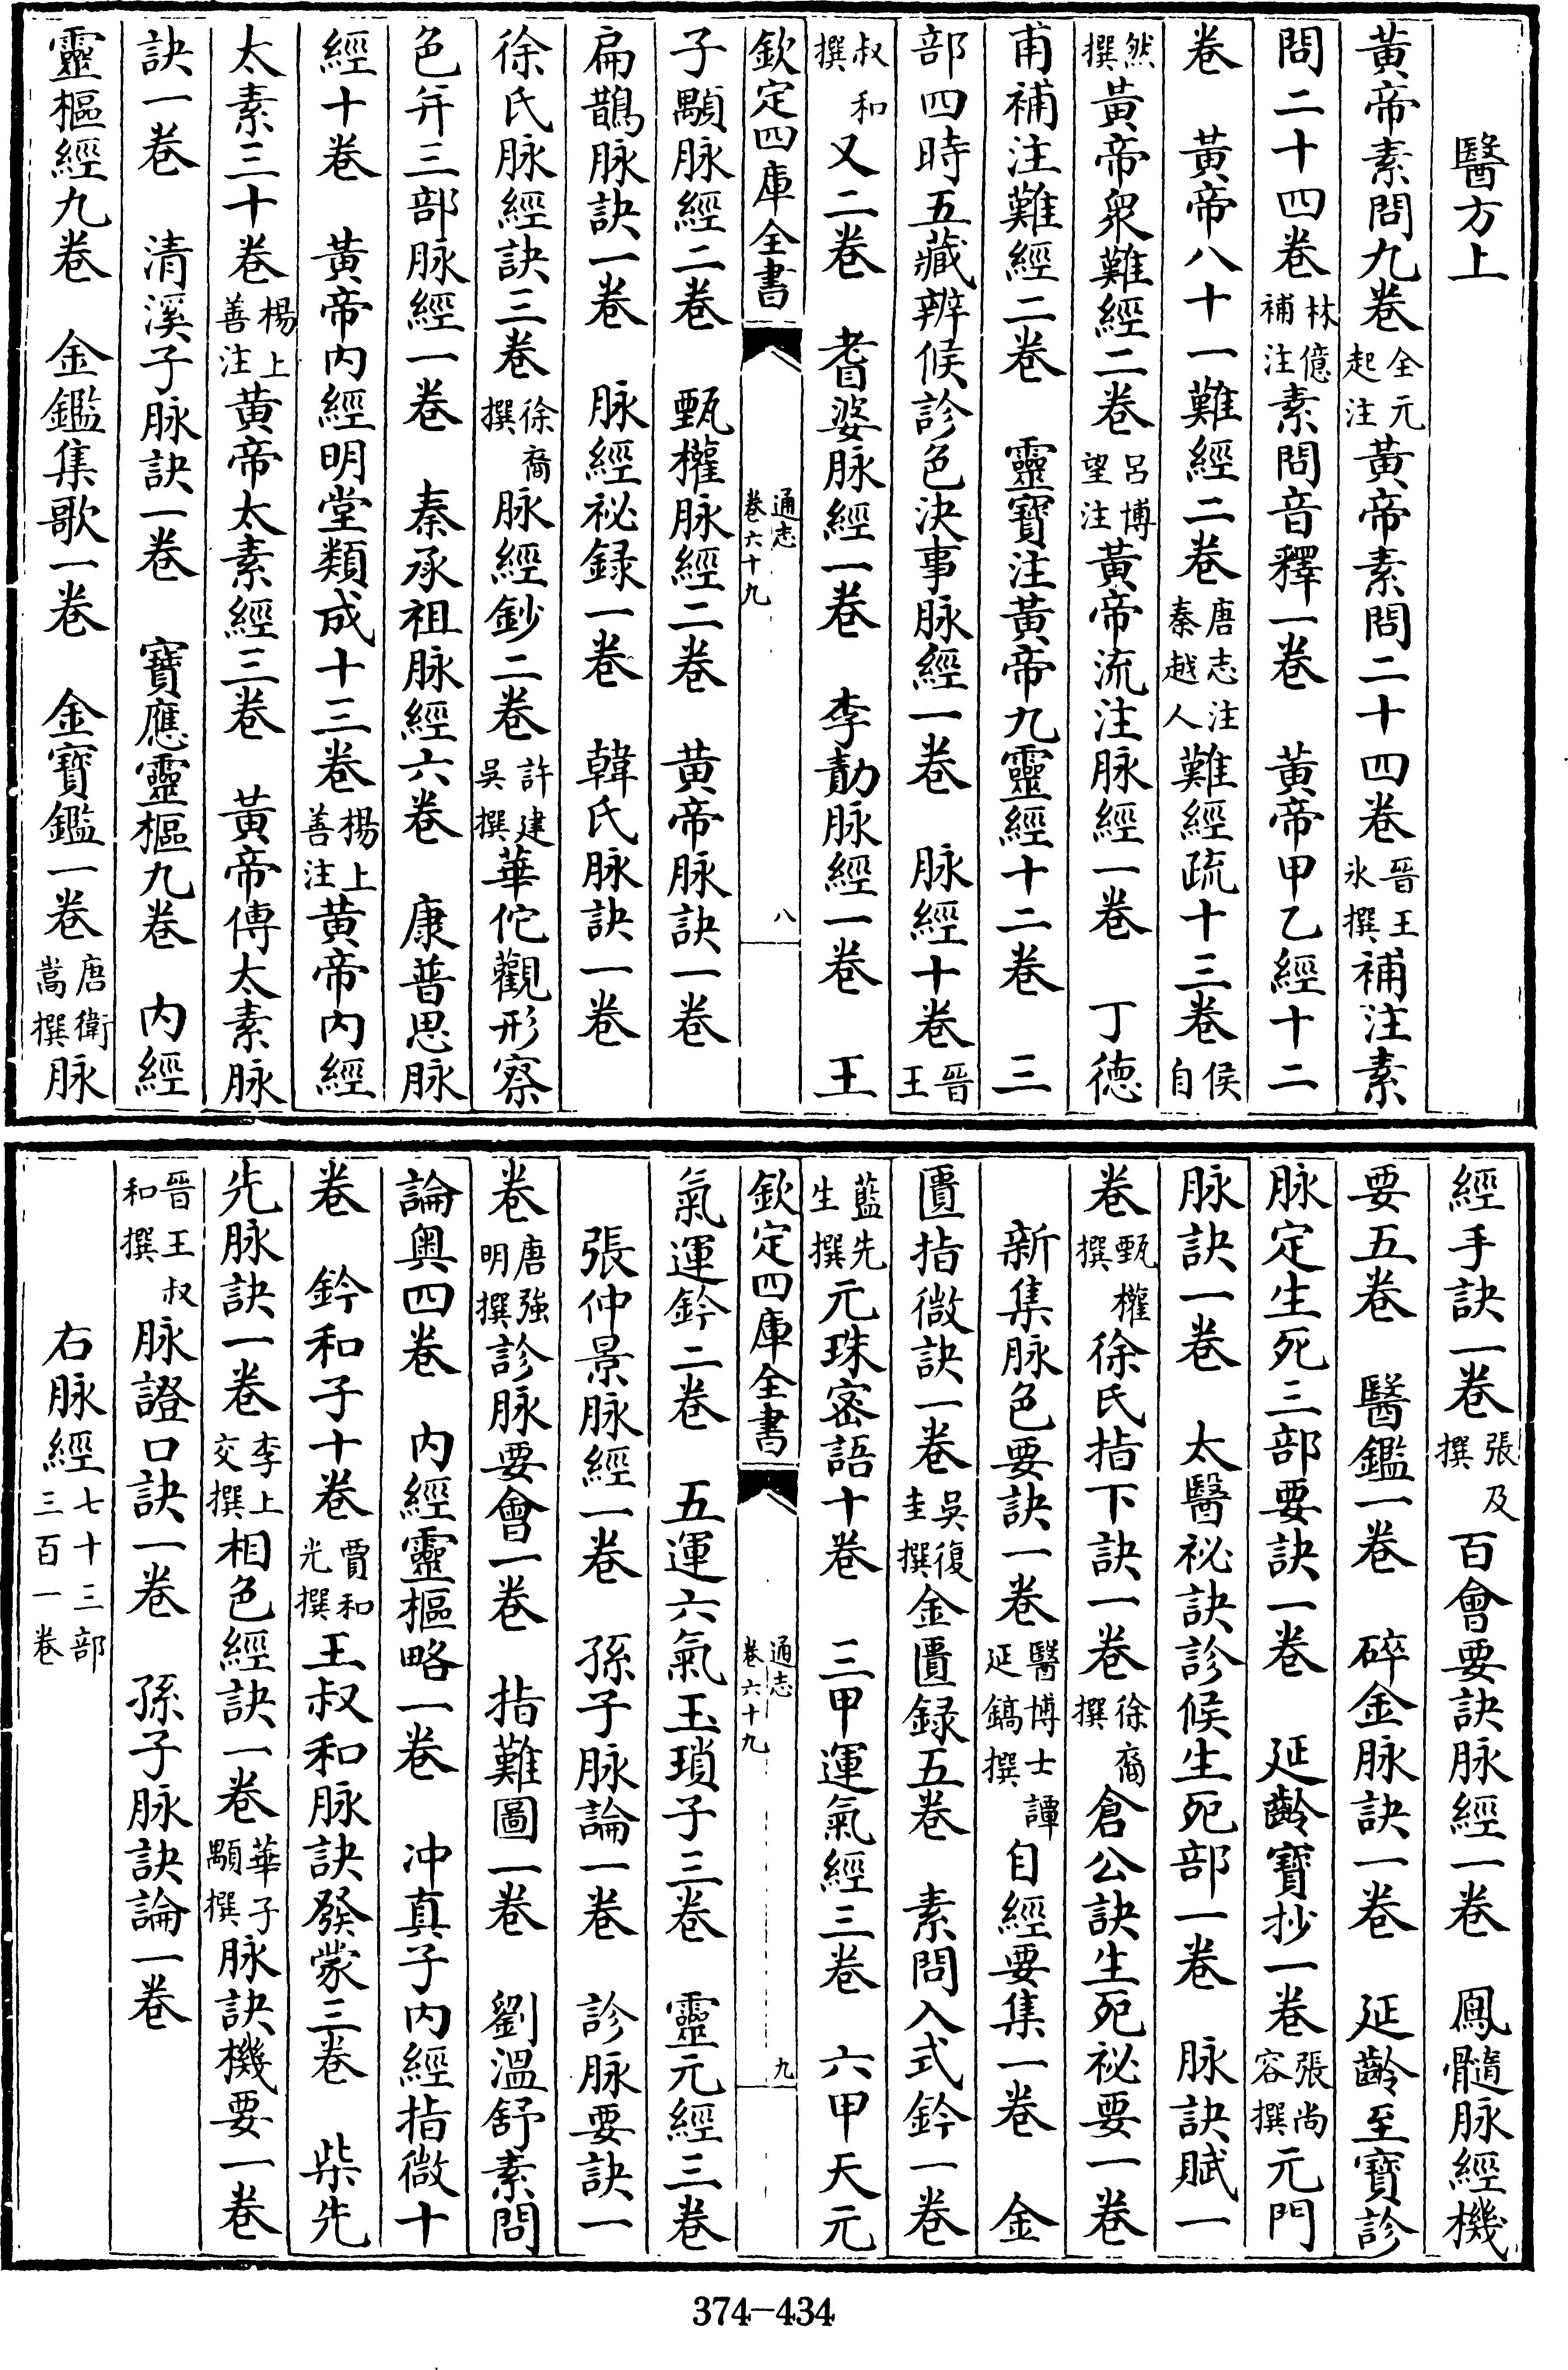 醫方上
黃帝素問九卷全元起注黃帝素問二十四卷晉王氷撰補注素
問二十四卷林億補注素問音釋一卷　黃帝甲乙經十二
卷　黃帝八十一難經二卷唐志注秦越人難經疏十三卷侯自
然撰黃帝衆難經二卷呂博望注黃帝流注脉經一卷　丁德
甫補注難經二卷　靈寶注黃帝九靈經十二卷　三
部四時五藏辨候診色決事脉經一卷　脉經十卷晉王
叔和撰又二卷　耆婆脉經一卷　李勣脉經一卷　王
欽定四庫全書　通志卷六十九　八
子顒脉經二卷　甄權脉經二卷　黃帝脉訣一卷
扁鵲脉訣一卷　脉經祕録一卷　韓氏脉訣一卷
徐氏脉經訣三卷徐裔撰脉經鈔二卷許建吳撰華佗觀形察
色并三部脉經一卷　秦承祖脉經六卷　康普思脉
經十卷　黃帝內經明堂類成十三卷楊上善注黃帝內經
太素三十卷楊上善注黃帝太素經三卷　黃帝傳太素脉
訣一卷　清溪子脉訣一卷　寶應靈樞九卷　內經
靈樞經九卷　金鑑集歌一卷　金寶鑑一卷唐衛嵩撰脉
經手訣一卷張及撰百會要訣脉經一卷　鳳髓脉經機
要五卷　醫鑑一卷　碎金脉訣一卷　延齡至寶診
脉定生死三部要訣一卷　延齡寶抄一卷張尚容撰元門
脉訣一卷　太醫祕訣診候生死部一卷　脉訣賦一
卷甄權撰徐氏指下訣一卷徐裔撰倉公訣生死祕要一卷
新集脉色要訣一卷醫博士譚延鎬撰自經要集一卷　金
匱指微訣一卷吳復圭撰金匱録五卷　素問入式鈐一卷
藍先生撰元珠密語十卷　三甲運氣經三卷　六甲天元
欽定四庫全書　通志卷六十九　九
氣運鈐二卷　五運六氣玉瑣子三卷　靈元經三卷
張仲景脉經一卷　孫子脉論一卷　診脉要訣一
卷唐強明撰診脉要會一卷　指難圖一卷　劉溫舒素問
論奥四卷　內經靈樞略一卷　冲真子內經指微十
卷　鈐和子十卷賈和光撰王叔和脉訣發蒙三卷　柴先
先脉訣一卷李上交撰相色經訣一卷華子顒撰脉訣機要一卷
晉王叔和撰脉證口訣一卷　孫子脉訣論一卷
右脉經七十三部三百一卷
374-434